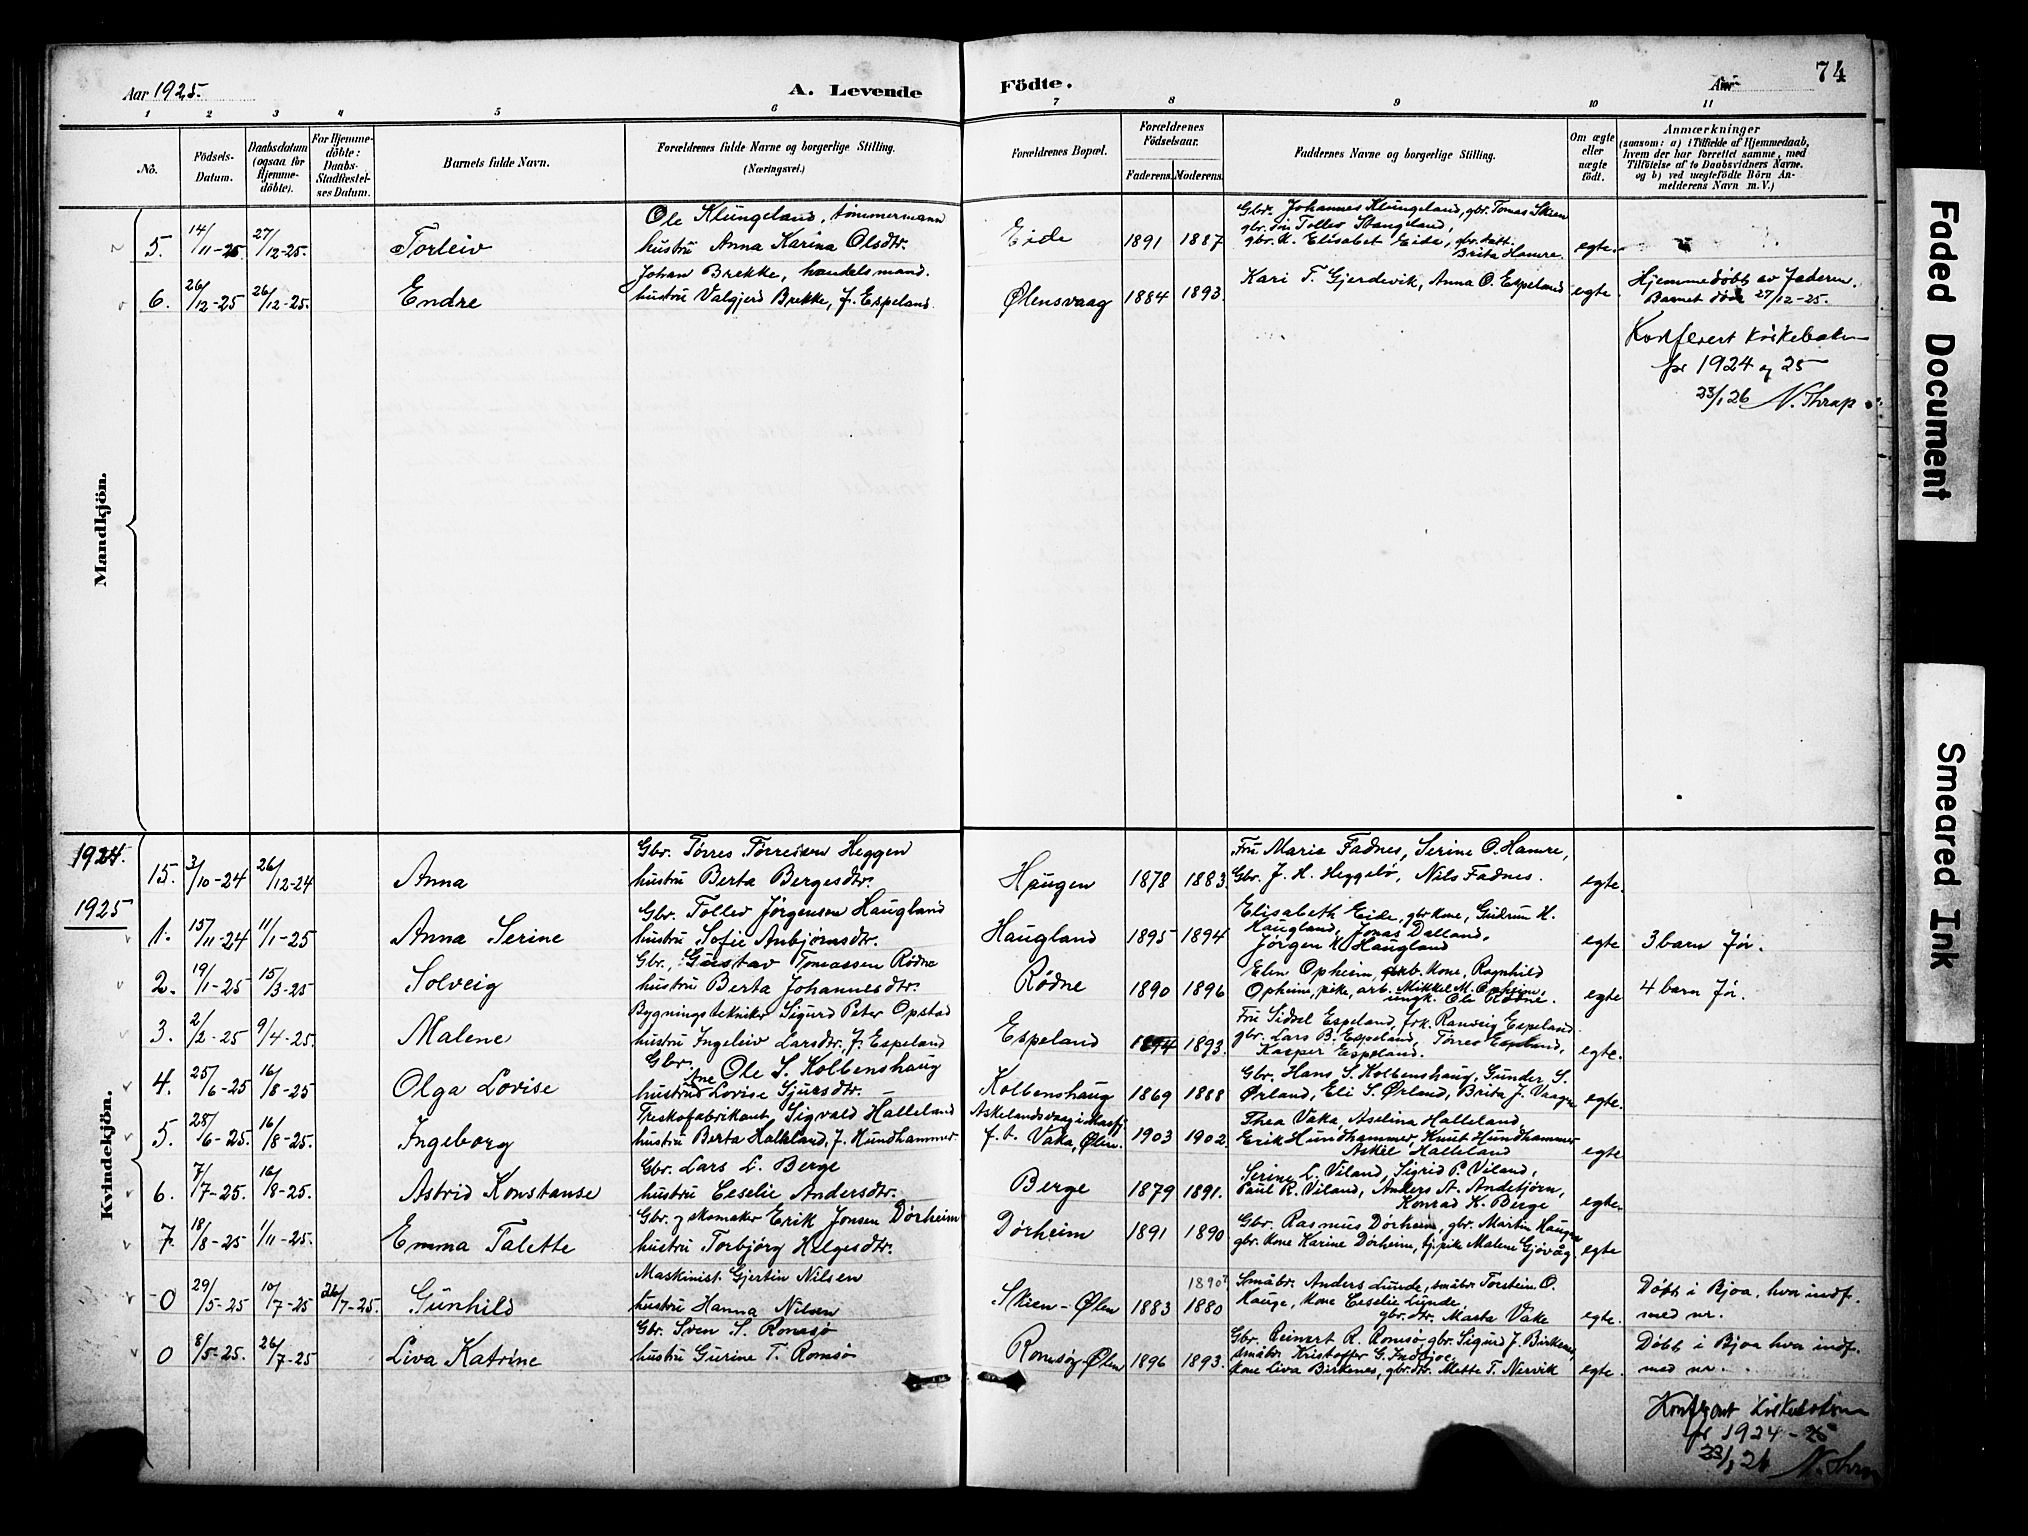 Aar 1925.
A. Levende Födte.
Aar
74
1 2 3 4 5 6 7 8 9 10 11
No.
Födsels-Datum.
Daabsdatum (ogsaa for Hjemmedöbte).
For Hjemmedöbte: Daabs-Stadfæstelses Datum.
Barnets fulde Navn.
Forældrenes fulde Navne og borgerlige Stilling.
(Næringsvei.)
Forældrenes Bopæl.
Forældrenes Födselsaar.
Faderens. Moderens.
Faddernes Navne og borgerlige Stilling.
Om ægte eller uægte födt.
Anmærkninger
(saasom: a) i Tilfælde af Hjemmedaab, hvem der har forrettet samme, med Tilföielse af to Daabsvidners Navne. og b) ved uægtefödte Börn Anmelderens Navn m. V.)
Mandkjön.
5. 14/11-25. 27/12-25. Torleiv
Ole Klungeland, tømmermann
hustru Anna Karina Olsdtr.
Eide 1891 1887
Gbr. Johannes Klungeland, gbr. Tomas Skien
gbr. Tollev Stangeland,
gbr. k. Elisabet Eide,
Brita Hamre. egte.
6. 26/12-25 26/12-25. Endre
Johan Brekke, handelsmand.
hustru Valgjerd Brekke, f. Espeland.
Ølensvaag 1884 1893.
Kari T. Gjerdevik, Anna O. Espeland egte.
Hjemmedøbt av Faderen.
Barnet døde 27/12-25.
Konferert kirkeboken
for 1924 og 25
23/1 26 N. Thrap
Kvindekjön.
1924.
15. 3/10-24 26/12-24 Anna
Gbr. Tørres Tørresen Heggen
hustru Berta Bergesdtr.
Haugen 1878 1883.
Fru Marie Fadnes, Serine O. Hamre,
Gbr. J. H. Heggebø, Nils Fadnes. egte.
1925
1. 15/11-24 11/1-25 Anna Serine
Gbr. Tollev Jørgensen Haugland
hustru Sofie Anbjørnsdtr.
Haugland 1895 1894
Elisabeth Eide, gbr kone, Gudrun H.
Haugland, Jonas Dalland,
Jørgen K. Haugland egte 3 barn før.
2. 19/1-25 15/3-25 Solveig
Gbr. Gustav Tomassen Rødne
hustru Berta Johannesdtr.
Rødne 1890 1896
Elen Opheim, kone, Ragnhild
Opheim, pike, arb. Mikkel M. Opheim,
ungk. Ole Rødne. egte 4 barn før.
3. 2/2-25 9/4-25. Malene
Bygningstekniker Sigurd Peter Opstad
hustru Ingeleiv Larsdtr., f. Espeland
Espeland 1894 1893.
Fru Sidsel Espeland, frk. Ranveig Espeland.
gbr. Lars B. Espeland, Tørres Espeland,
Kasper Espeland. egte.
4. 25/6-25 16/8-25 Olga Lovise
Gbr. Ole S. Kolbenshaug
hustru Ane Lovise Sjursdtr.
Kolbenshaug 1869 1888
Gbr. Hans S. Kolbenshaug, Gunder S.
Ørland, Eli S. Ørland, Brita J. Vaage egte.
5. 28/6-25. 16/8-25. Ingeborg
Treskofabrikant Sigvald Halleland
hustru Berta Halleland, f. Hundhammer.
Askelandsvaag i
f. t. Vaka, Ølen. 1903 1902.
Thea Vaka, Aselina Halleland,
Erik Hundhammer, Knut Hundhammer
Askel Halleland egte
6. 7/7-25. 16/8-25. Astrid Konstanse
Gbr. Lars L. Berge
hustru Ceselie Andersdtr.
Berge 1879 1891.
Serine L. Viland, Sigrid P. Viland,
Paul R. Viland, Anders A. Andebjørn,
Konrad K. Berge egte.
7. 18/8-25 1/11-25. Emma Talette
Gbr. og skomaker Erik Jonsen Dørheim
hustru Torbjørg Helgesdtr.
Dørheim 1891 1890
Gbr. Rasmus Dørheim, gbr. Martin Haugen
gbr. kone Karine Dørheim, tj. pike Malene Gjøvåg. egte
0 29/5-25 10/7-25 26/7-25. Gunhild
Maskinist. Gjertin Nilsen
hustru Hanna Nilsen
Skien - Ølen 1883 1880 1890?
Småbr. Anders Lunde, småbr. Torstein O.
Hauge, kone Ceselie Lunde,
gbr. dtr. Marta Vake egte.
Døbt i Bjoa, hvor indf.
med nr.
0 8/5-25. 26/7-25 Liva Katrine
Gbr. Sven S. Romsø
hustru Gurine T. Romsø
Romsø, Ølen 1896 1893.
Gbr. Reinert R. Romsø, gbr. Sigurd J. Birkenes,
småbr. Kristoffer G. Indbjoe,
kone Liva Birkenes, gbr. dtr. Mette T. Nervik egte.
Døbt i Bjoa hvor indf.
med nr.
Konferert kirkeboken
for 1924-25
23/1 26 N. Thrap
Faded Document
Smeared Ink